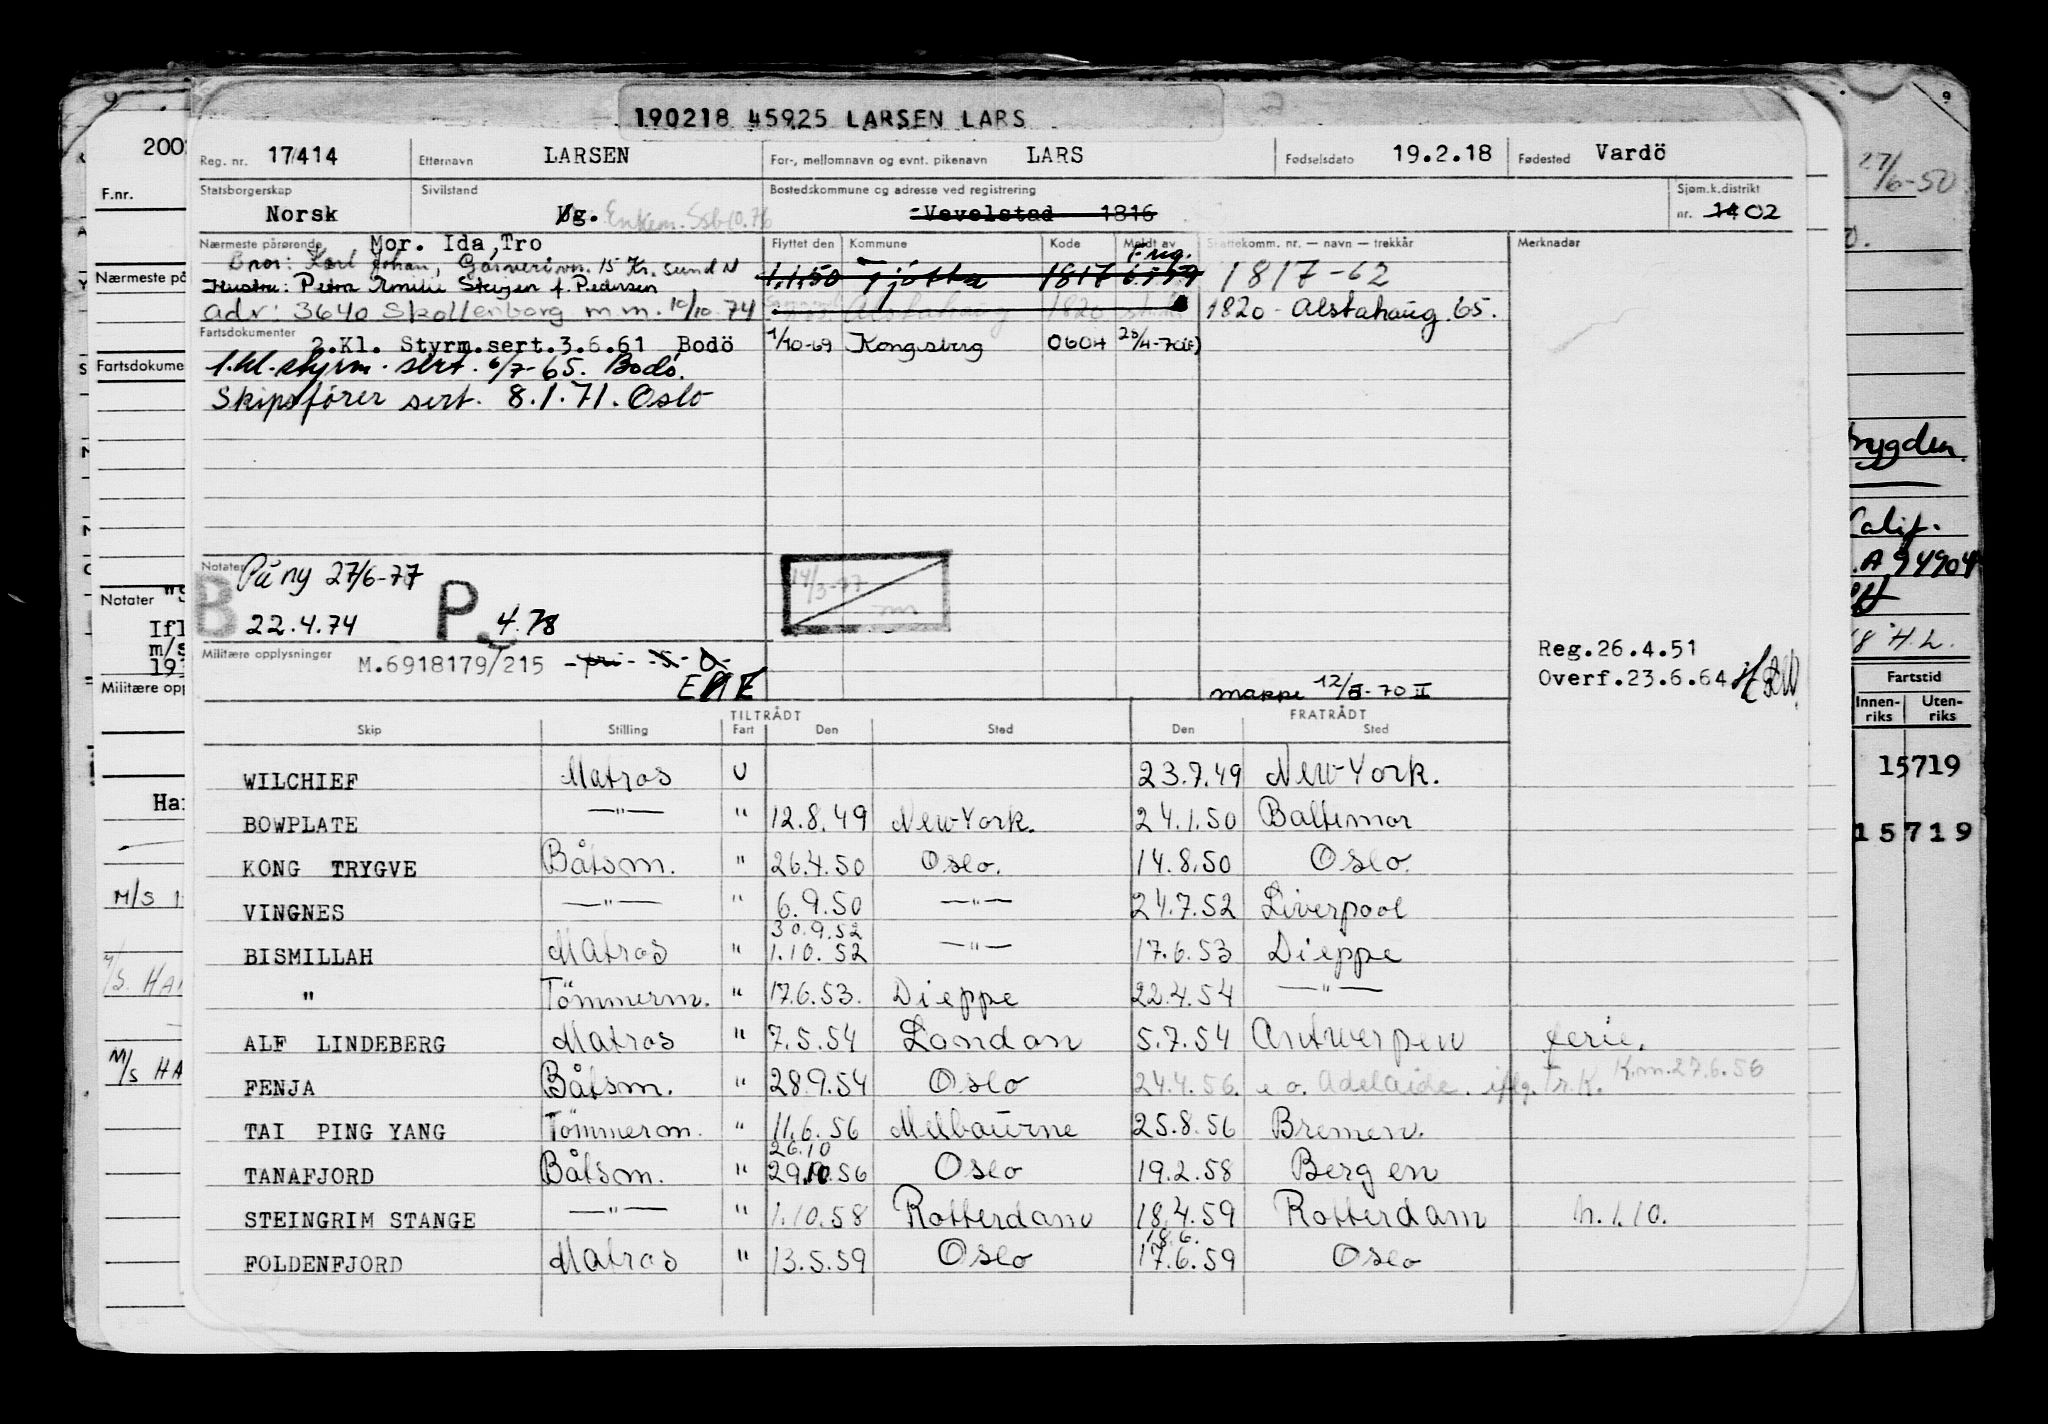 190218 45925 LARSEN LARS
Reg. nr. 17414 Etternavn LARSEN For-, mellomnavn og evnt. pikenavn LARS Fødselsdato 19.2.18 Fødested Vardö
Statsborgerskap Sivilstand Bostedskommune og adresse ved registrering Sjøm.k.distrikt
Norsk Ug. Enkem. Ssb 10.76 Vevelstad 1816 nr. 14 02
Nærmeste pårørende Mor. Ida, Tro Flyttet den Kommune Kode Meldt av Skattekomm. nr. — navn — trekkår Merknadar
Bror: Karl Johan, 15 Kr.sund N 1.1.50 Tjötta 1817 1817-62
Hustru: Petra Amilie Steigen f. Pedersen
Adr: 3640 Skollenborg m.m. 10/10.74 Alstahaug 1820 1820 - Alstahaug 65.
Fartsdokumenter
2.Kl. Styrm.sert.3.6.61 Bodö 1/10-69 Kongsberg 0604 28/4-70
1.kl. styrm. sert. 6/7-65. Bodö.
Skipsfører sert. 8.1.71. Oslo
Notater På ny 27/6-77 14/3-77
B 22.4.74 P. 4.78
Militære opplysninger M.6918179/215
Reg.26.4.51
Overf.23.6.64
mappe 12/5-70 II
TILTRÅDT FRATRÅDT
Skip Stilling Fart Den Sted Den Sted
WILCHIEF Matros U 23.7.49 New York.
BOWPLATE —"— " 12.8.49 New York. 24.1.50 Baltimor
KONG TRYGVE Båtsm. " 26.4.50 Oslo. 14.8.50 Oslo.
VINGNES —"— " 6.9.50 —"— 24.7.52 Liverpool
30.9.52
BISMILLAH Matros " 1.10.52 —"— 17.6.53 Dieppe
" Tömmerm. " 17.6.53. Dieppe 22.4.54 —"—
ALF LINDEBERG Matros " 7.5.54 London 5.7.54 Antwerpen ferie.
FENJA Båtsm. " 28.9.54 Oslo 24.4.56. e.o. Adelaide. iflg. Tr.K. K.m.27.6.56
TAI PING YANG Tömmerm. " 11.6.56 Melbourne 25.8.56 Bremen.
26.10
TANAFJORD Båtsm. " 29.10.56 Oslo 19.2.58 Bergen
STEINGRIM STANGE —"— " 1.10.58 Rotterdam 18.4.59 Rotterdam h.1.10.
18.6.
FOLDENFJORD Matros " 13.5.59 Oslo 17.6.59 Oslo
9
F.nr.
Nærmeste på
Fartsdokume
Notater
Ifl
m/s
Militære opp
Ha
M/S
M/S. HA
M/S HA
9
27/6-50
Calif.
.A 94904
H.L.
Fartstid
Innen-riks Uten-riks
15719
15719